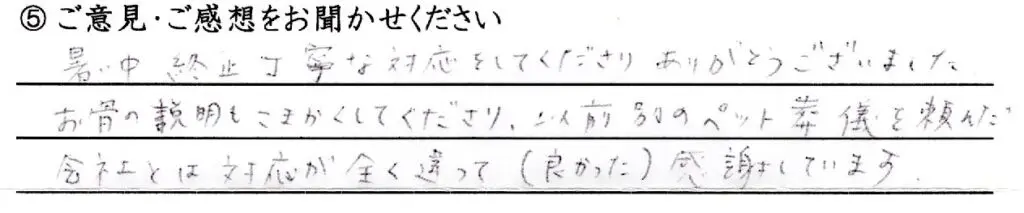 ⑤ ご意見・ご感想をお聞かせください
暑い中 終止丁寧な対応をしてくださり ありがとうございました
お骨の説明もこまかくしてくださり、以前別のペット葬儀を頼んだ
会社とは対応が全く違って(良かった)感謝しています.